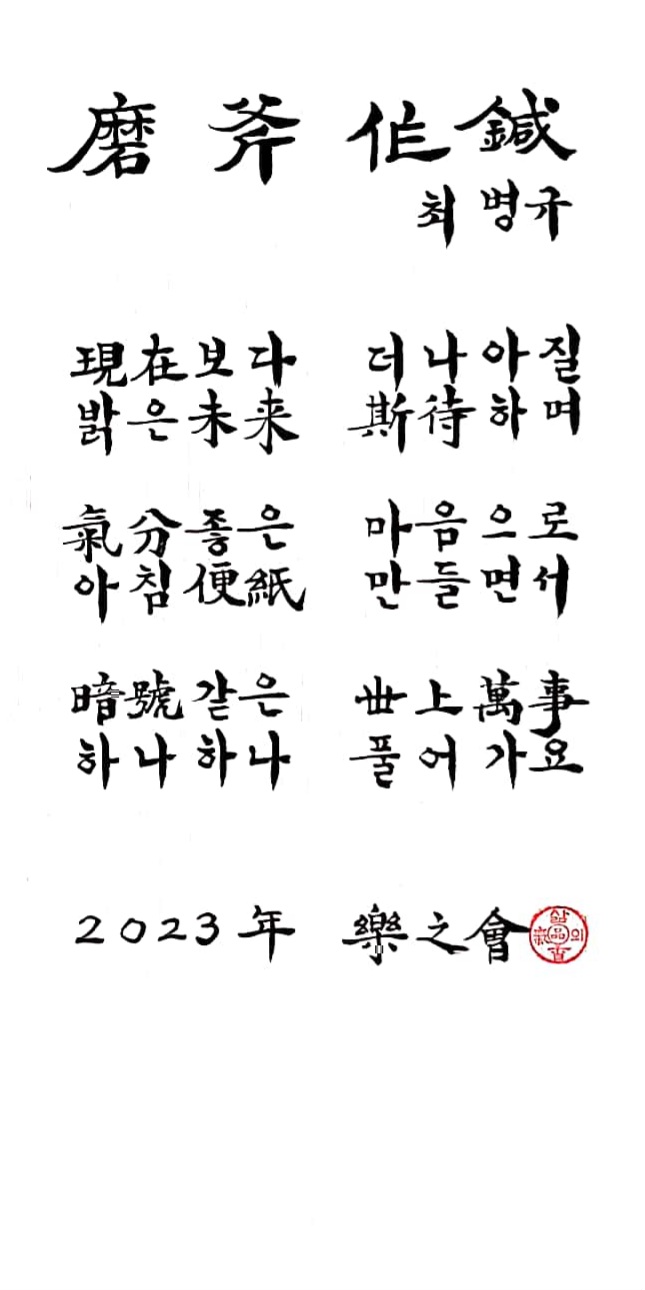 磨斧作鍼
최병규
現在보다 더나아질
밝은未来 斯待하며
氣分좋은 마음으로
아침便紙 만들면서
暗號같은 世上萬事
하나하나 풀어가요
2023年 樂之會